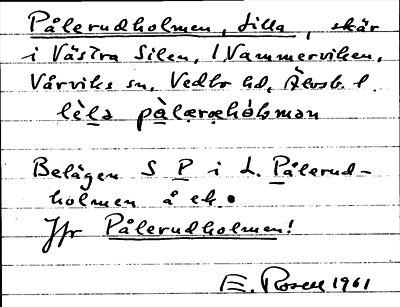 Pålerudholmen, Lilla, skär
i Västra Silen, / Vammerviken,
Vårviks sn, Vedbo hd, Älvsb. l.
lèla pàlæræhólman
Belägen S P i L. Pålerud-
holmen å ek.
Jfr Pålerudholmen!
E. Rosell 1961